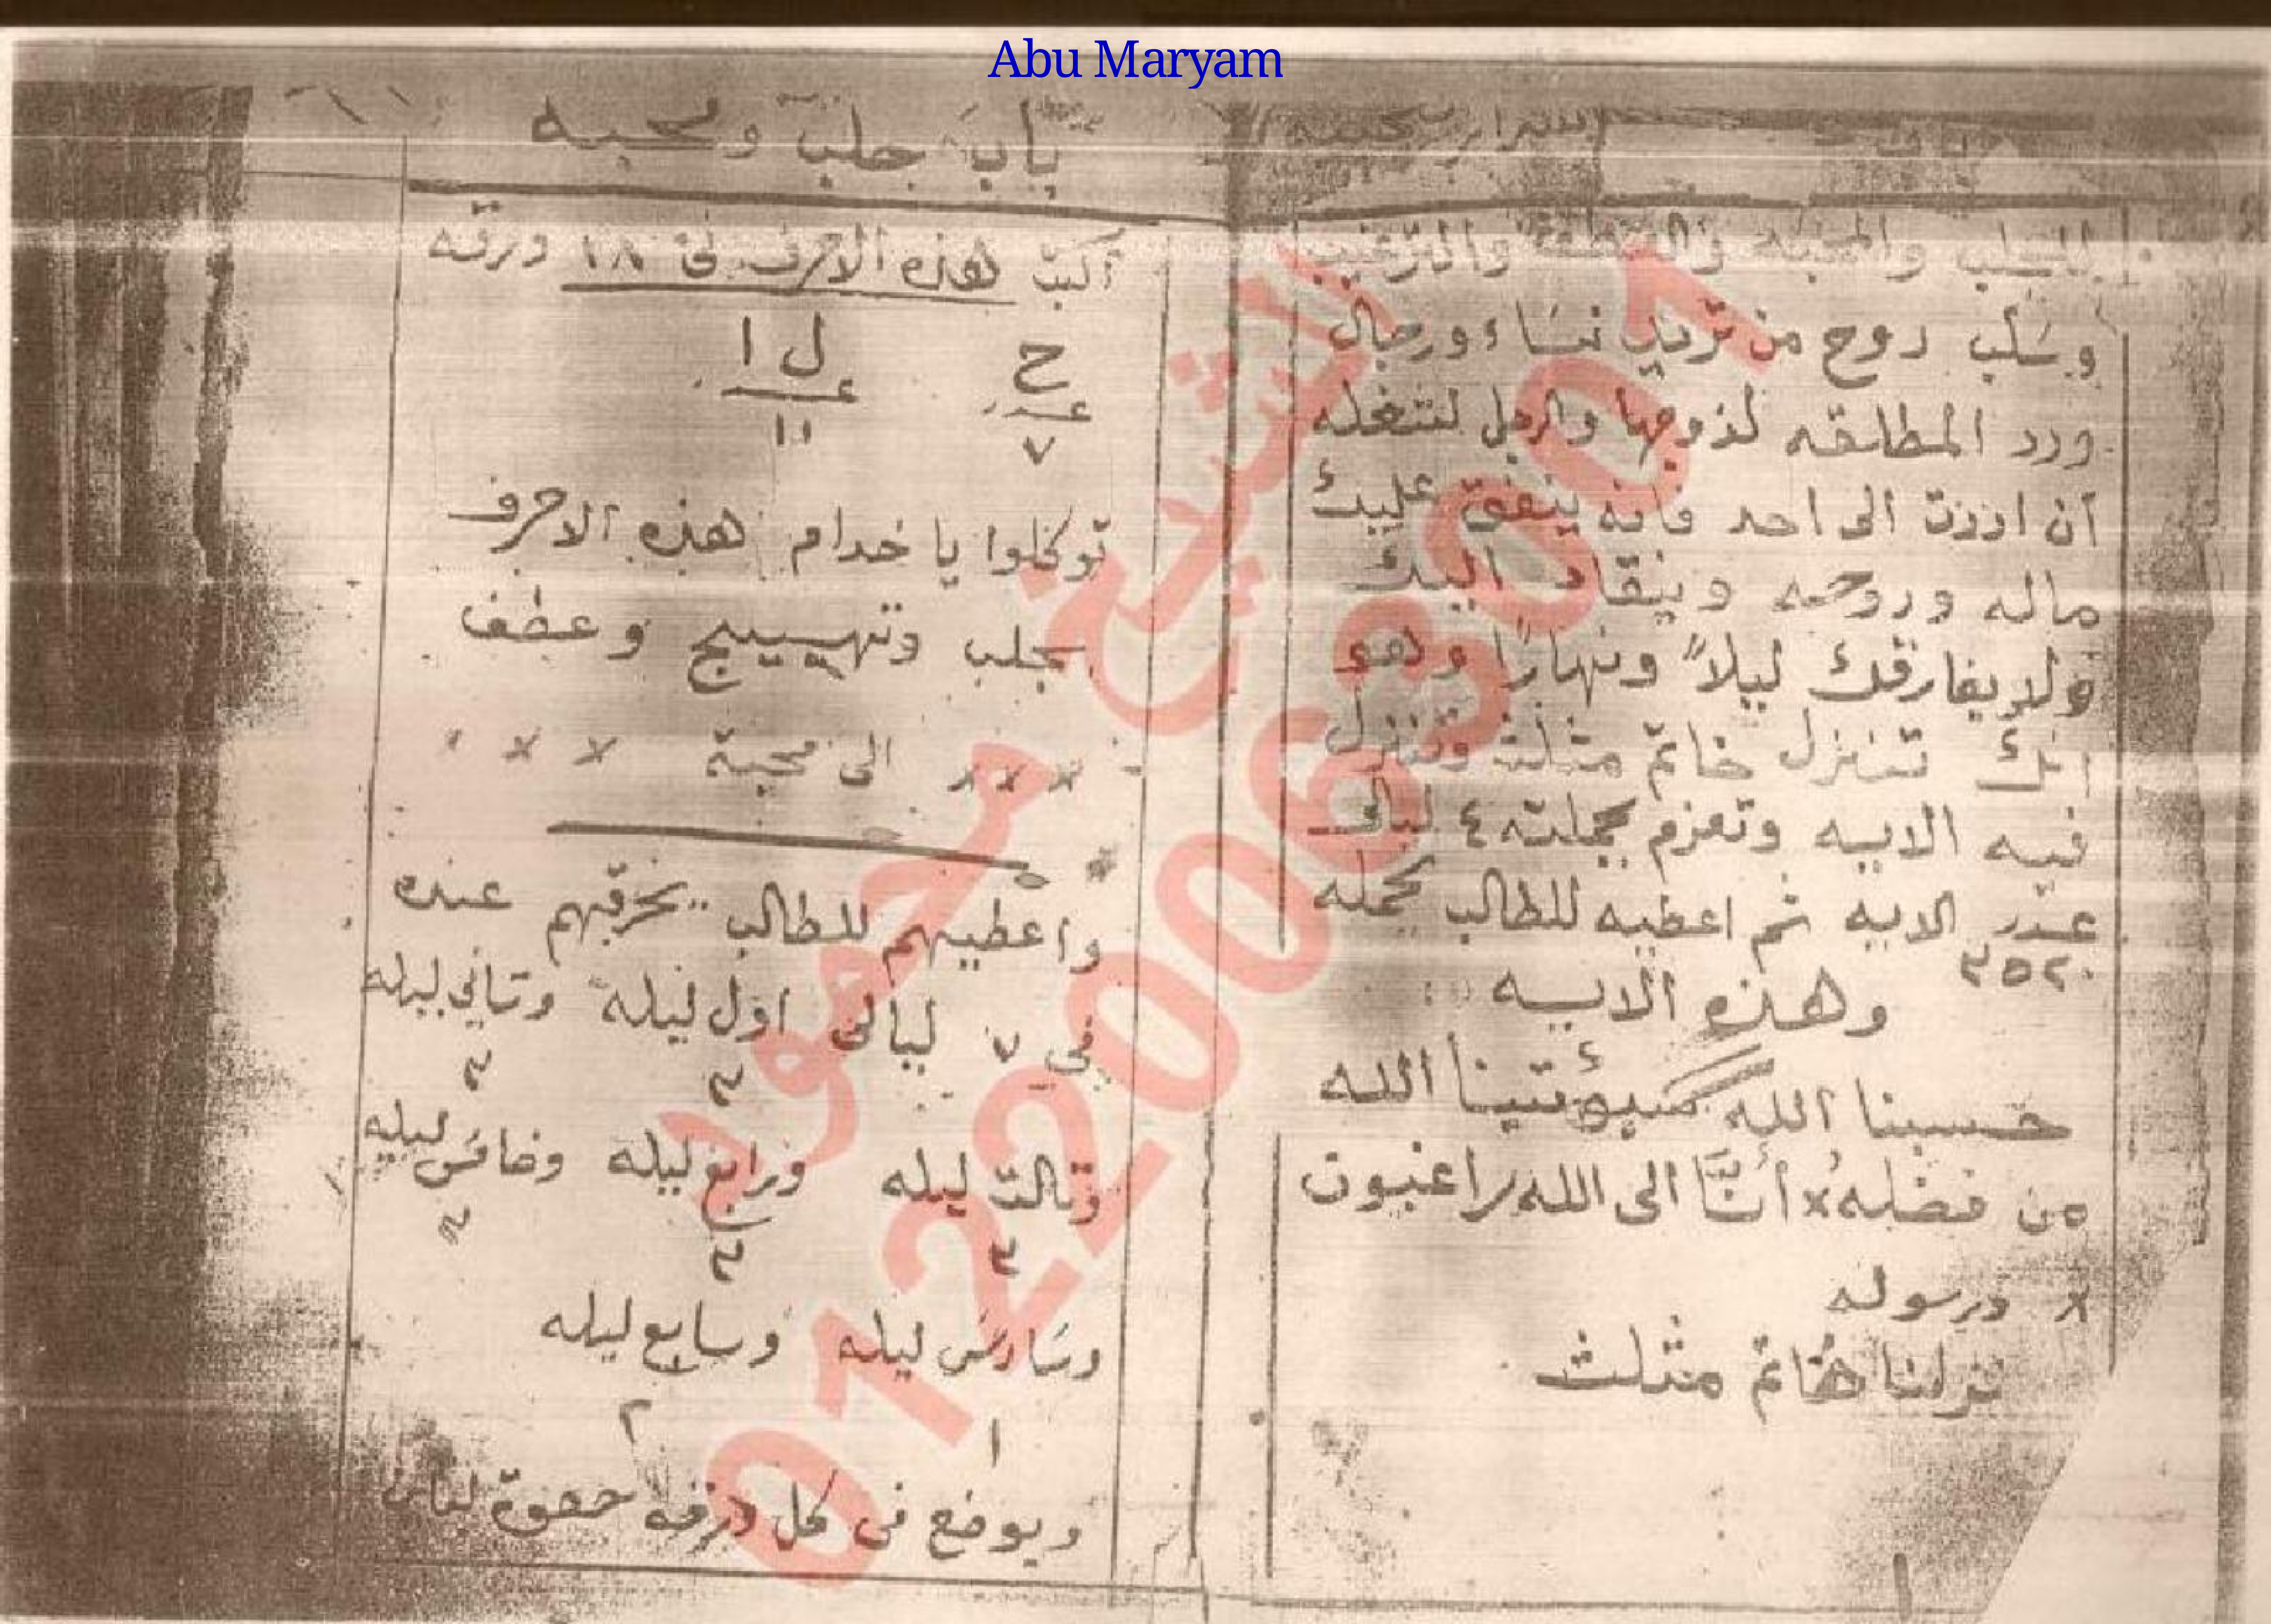 Abu Maryam
للجلب والمحبه والترغيب
وسَلب روح من تريد نسَاء ورجال
ورد المطلقه لذوجها والرجل لتشغله
آن اردت الى احد فانه ينفق عليك
ماله وروحه وينقاد اليك
ولا يفارقك ليلاً ونهارًا وهو
انك تنزل خاتم مثلث وتنزل
فيه الايه وتعزم بجملته ٤ ليالى
عدد الايه ثم اعطيه للطالب يحمله
٣٥٢٠
وهذه الايه
حسبنا الله سيؤتينا الله
من فضله × أنَّا الى الله راغبون
× ورسوله
نزلنا خاتم مثلث
باب جلب ومحبه
آكتب هذه الاحرف فى ١٨ ورقه
ح ل ا
عدد عـ
٧ ١١
توكلوا يا خدام هذه الاحرف
بجلب وتهييج وعطف
× × × الى محبة × × ×
واعطيهم للطالب يحرقهم عنده
في ٧ ليالى اول ليله وتاني ليله
٣ ٣
وتالت ليله ورابع ليله وخامس ليله
٣ ٣ ٣
وسَادس ليله وسابع ليله
١ ٢
ويوضع فى كل ورقه حصوة لبان
الشيخ محمود
01220063001